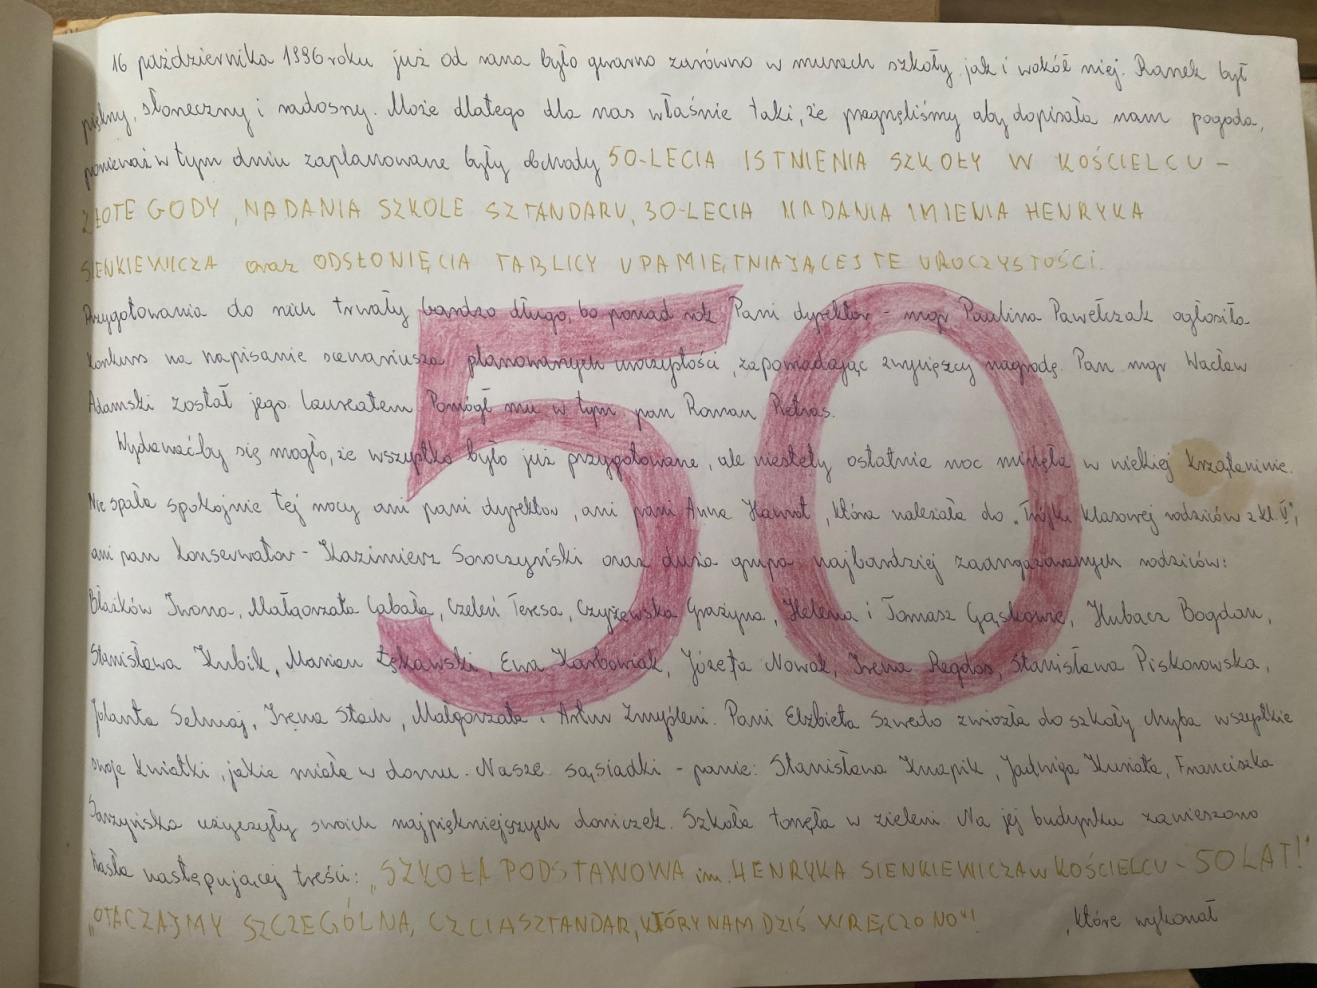 16 października 1996 roku już od rana było gwarno zarówno w murach szkoły, jak i wokół niej. Ranek był
piękny, słoneczny i radosny. Może dlatego dla nas właśnie taki, że pragnęliśmy aby dopisała nam pogoda,
ponieważ w tym dniu zaplanowane były obchody 50-LECIA ISTNIENIA SZKOŁY W KOŚCIELCU -
ZŁOTE GODY, NADANIA SZKOLE SZTANDARU, 30-LECIA NADANIA IMIENIA HENRYKA
SIENKIEWICZA oraz ODSŁONIĘCIA TABLICY UPAMIĘTNIAJĄCEJ TE UROCZYSTOŚCI.
Przygotowania do nich trwały bardzo długo, bo ponad rok Pani dyrektor - mgr Paulina Pawełczak ogłosiła
konkurs na napisanie scenariusza planowanych uroczystości, zapowiadając zwycięzcy nagrodę. Pan mgr Wacław
Adamski został jego laureatem. Pomógł mu w tym pan Roman Pietras.
Wydawaćby się mogło, że wszystko było już przygotowane, ale niestety ostatnia noc minęła w wielkiej krzątaninie.
Nie spała spokojnie tej nocy ani pani dyrektor, ani pani Anna Hamrot, która należała do „Trójki klasowej rodziców z kl. V",
ani pan konserwator - Kazimierz Soroczyński oraz duża grupa najbardziej zaangażowanych rodziców:
Błaików Iwona, Małgorzata Cabała, Czeleń Teresa, Czyżewska Grażyna, Helena i Tomasz Gąskowie, Hubacz Bogdan,
Stanisława Kubik, Marian Łękawski, Ewa Karbowiak, Józefa Nowak, Irena Regdos, Stanisława Piskorowska,
Jolanta Selmaj, Irena Stach, Małgorzata i Artur Zmyśleni. Pani Elżbieta Szwedo zwiozła do szkoły chyba wszystkie
swoje kwiatki, jakie miała w domu. Nasze sąsiadki - panie: Stanisława Knapik, Jadwiga Kuriata, Franciszka
Sarzyńska użyczyły swoich najpiękniejszych doniczek. Szkoła tonęła w zieleni. Na jej budynku zawieszono
hasła następującej treści: „SZKOŁA PODSTAWOWA im. HENRYKA SIENKIEWICZA w KOŚCIELCU - 50 LAT!"
„OTACZAJMY SZCZEGÓLNĄ CZCIĄ SZTANDAR, KTÓRY NAM DZIŚ WRĘCZONO"! , które wykonał
50